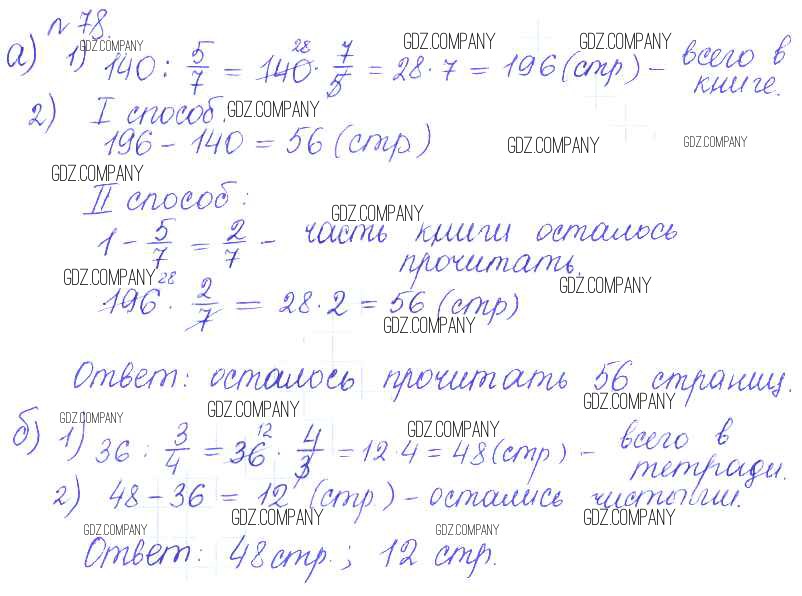 № 78.
а) 1) 140 : 5/7 = 140 · 7/5 = 28 · 7 = 196 (стр) – всего в
28
книге.
GDZ.COMPANY GDZ.COMPANY GDZ.COMPANY
2) I способ: GDZ.COMPANY
196 – 140 = 56 (стр)
GDZ.COMPANY GDZ.COMPANY
GDZ.COMPANY
II способ:
GDZ.COMPANY
1 – 5/7 = 2/7 – часть книги осталось
прочитать.
GDZ.COMPANY 28 GDZ.COMPANY
196 · 2/7 = 28 · 2 = 56 (стр)
GDZ.COMPANY
Ответ: осталось прочитать 56 страниц.
GDZ.COMPANY GDZ.COMPANY GDZ.COMPANY
б) 1) 36 : 3/4 = 36 · 4/3 = 12 · 4 = 48 (стр) – всего в
12 GDZ.COMPANY
тетради.
2) 48 – 36 = 12 (стр) – остались чистыми.
GDZ.COMPANY GDZ.COMPANY
GDZ.COMPANY GDZ.COMPANY
Ответ: 48 стр.; 12 стр.